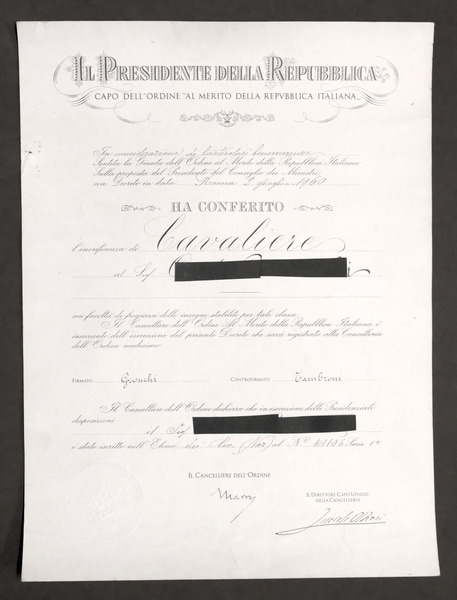 IL PRESIDENTE DELLA REPUBBLICA
CAPO DELL'ORDINE "AL MERITO DELLA REPVBBLICA ITALIANA"
In considerazione di particolari benemerenze
Sentita la Giunta dell'Ordine al Merito della Repubblica Italiana
Sulla proposta del Presidente del Consiglio dei Ministri
con Decreto in data Roma 2 giugno 1960
HA CONFERITO
l'onorificenza di Cavaliere
al Sig
con facoltà di fregiarsi delle insegne stabilite per tale classe
Il Cancelliere dell'Ordine Al Merito della Repubblica Italiana è
incaricato dell'esecuzione del presente Decreto che sarà registrato alla Cancelleria
dell'Ordine medesimo
FIRMATO Gronchi CONTROFIRMATO Tambroni
Il Cancelliere dell'Ordine dichiara che in esecuzione delle Presidenziali
disposizioni il Sig
è stato iscritto nell'Elenco dei Cav. al N° Serie
IL CANCELLIERE DELL'ORDINE
IL DIRETTORE CAPO UFFICIO
DELLA CANCELLERIA